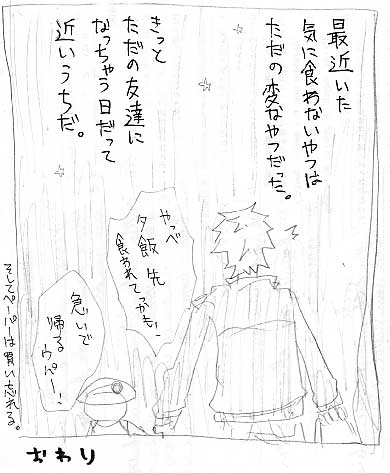 最近いた
気に食わないやつは
ただの変なやつだった。
きっと
ただの友達に
なっちゃう日だって
近いうちだ。
やっべ
夕飯先
食われてっかも!
急いで
帰るウペー!
そしてペーパーは買い忘れる。
おわり